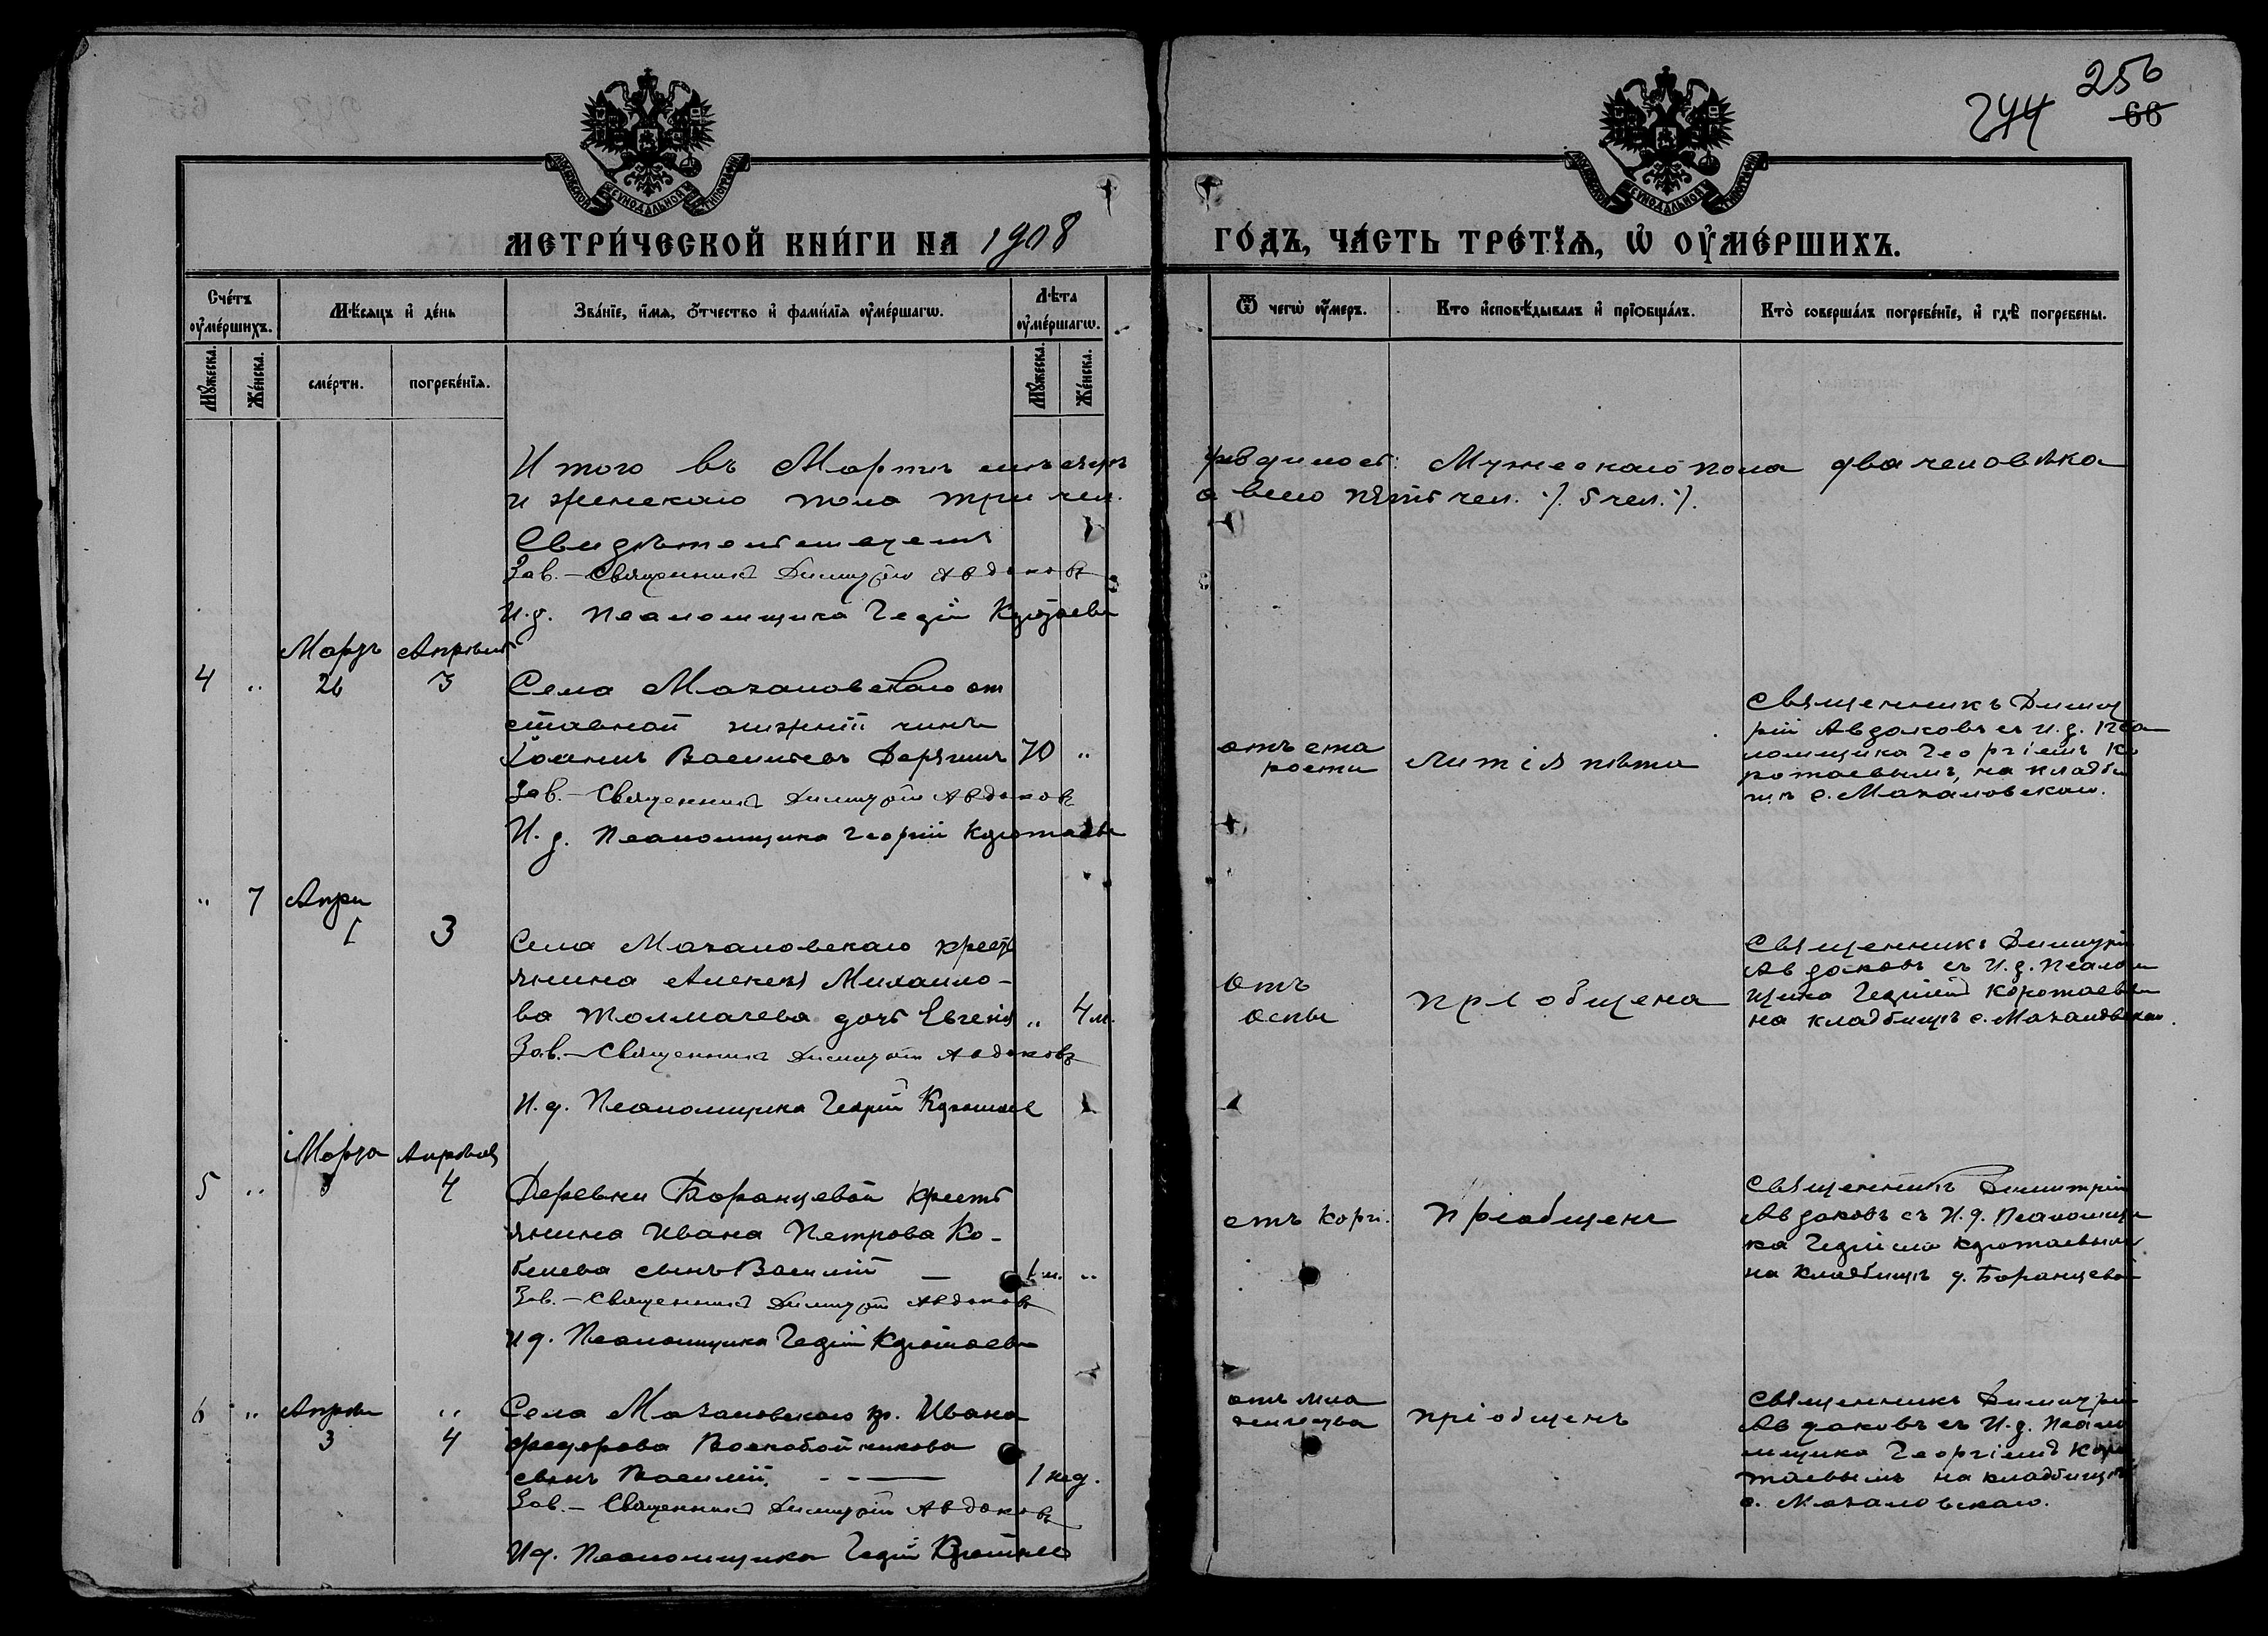 256
244
66
МЕТРИ́ЧЕСКОЙ КНИ́ГИ НА 1908
ГО́ДЪ, ЧА́СТЬ ТРЕ́ТЇѦ, Ѡ ОУМЕ́РШИХЪ.
Сче́тъ оуме́ршихъ.
Мѣ́сяцъ и де́нь
Зва́нїе, и́мя, о́тчество и фами́лїя оуме́ршагѡ.
Лѣ́та оуме́ршагѡ.
Ѿ чегѡ̀ оу́меръ.
Кто исповѣ́дывалъ и прїобща́лъ.
Кто̀ соверша́лъ погребе́нїе, и гдѣ̀ погребены.
Му́жеска.
Же́нска.
сме́рти.
погребе́нїя.
Му́жеска.
Же́нска.
Итого въ Мартѣ Мужескаго пола два человѣка
и женскаго пола три чел. а всего пять чел. ·/. 5 чел. ·/.
Зав. – Священникъ Димитрій Авдаковъ
И. д. Псаломщика Георгій Коротаевъ
Мартъ Апрѣль
4 „ 26 3 Села Мазановскаго от
ставной нижній чинъ
Іоаннъ Васильевъ Дерягинъ 70 „
Зав. – Священникъ Димитрій Авдаковъ
И. д. Псаломщика Георгій Коротаевъ
отъ ста
рости
Литія пѣта
Священникъ Димит
рій Авдаковъ съ и. д. Пса
ломщика Георгіемъ Ко
ротаевымъ, на кладби
щѣ с. Мазановскаго.
„ 7 Апрѣ
1 3
Села Мазановскаго кресть
янина Алексѣя Михаило-
ва Толмачева дочь Евгенія „ 4 м.
Зав. – Священникъ Димитрій Авдаковъ
И. д. Псаломщика Георгій Коротаев
отъ
оспы
пріобщена
Священникъ Димитрій
Авдаковъ съ И. д. Псалом
щика Георгіемъ Коротаевы
на кладбищѣ с. Мазановскаго.
Марта Апрѣля
5 „ 4 Деревни Баранцевой кресть
янина Ивана Петрова Ко-
белева сынъ Василій – 1 м. „
Зав. – Священникъ Димитрій Авдаковъ
И д. Псаломщика Георгій Коротаевъ
отъ корі.
пріобщенъ
Священникъ Димитрій
Авдаковъ съ И. д. Псаломщи
ка Георгіемъ Коротаевымъ
на кладбищѣ д. Баранцевой
6 „ Апрѣля „ Села Мазановскаго кр. Ивана
3 4 Федорова Воскобойникова
сынъ Василій – – — 1 нед.
Зав. – Священникъ Димитрій Авдаковъ
И д. Псаломщика Георгій Коротаев
отъ мла
денчества
пріобщенъ
Священникъ Димитрій
Авдаковъ съ И. д. Псало
мщика Георгіемъ Коро
таевымъ на кладбищѣ
с. Мазановскаго.